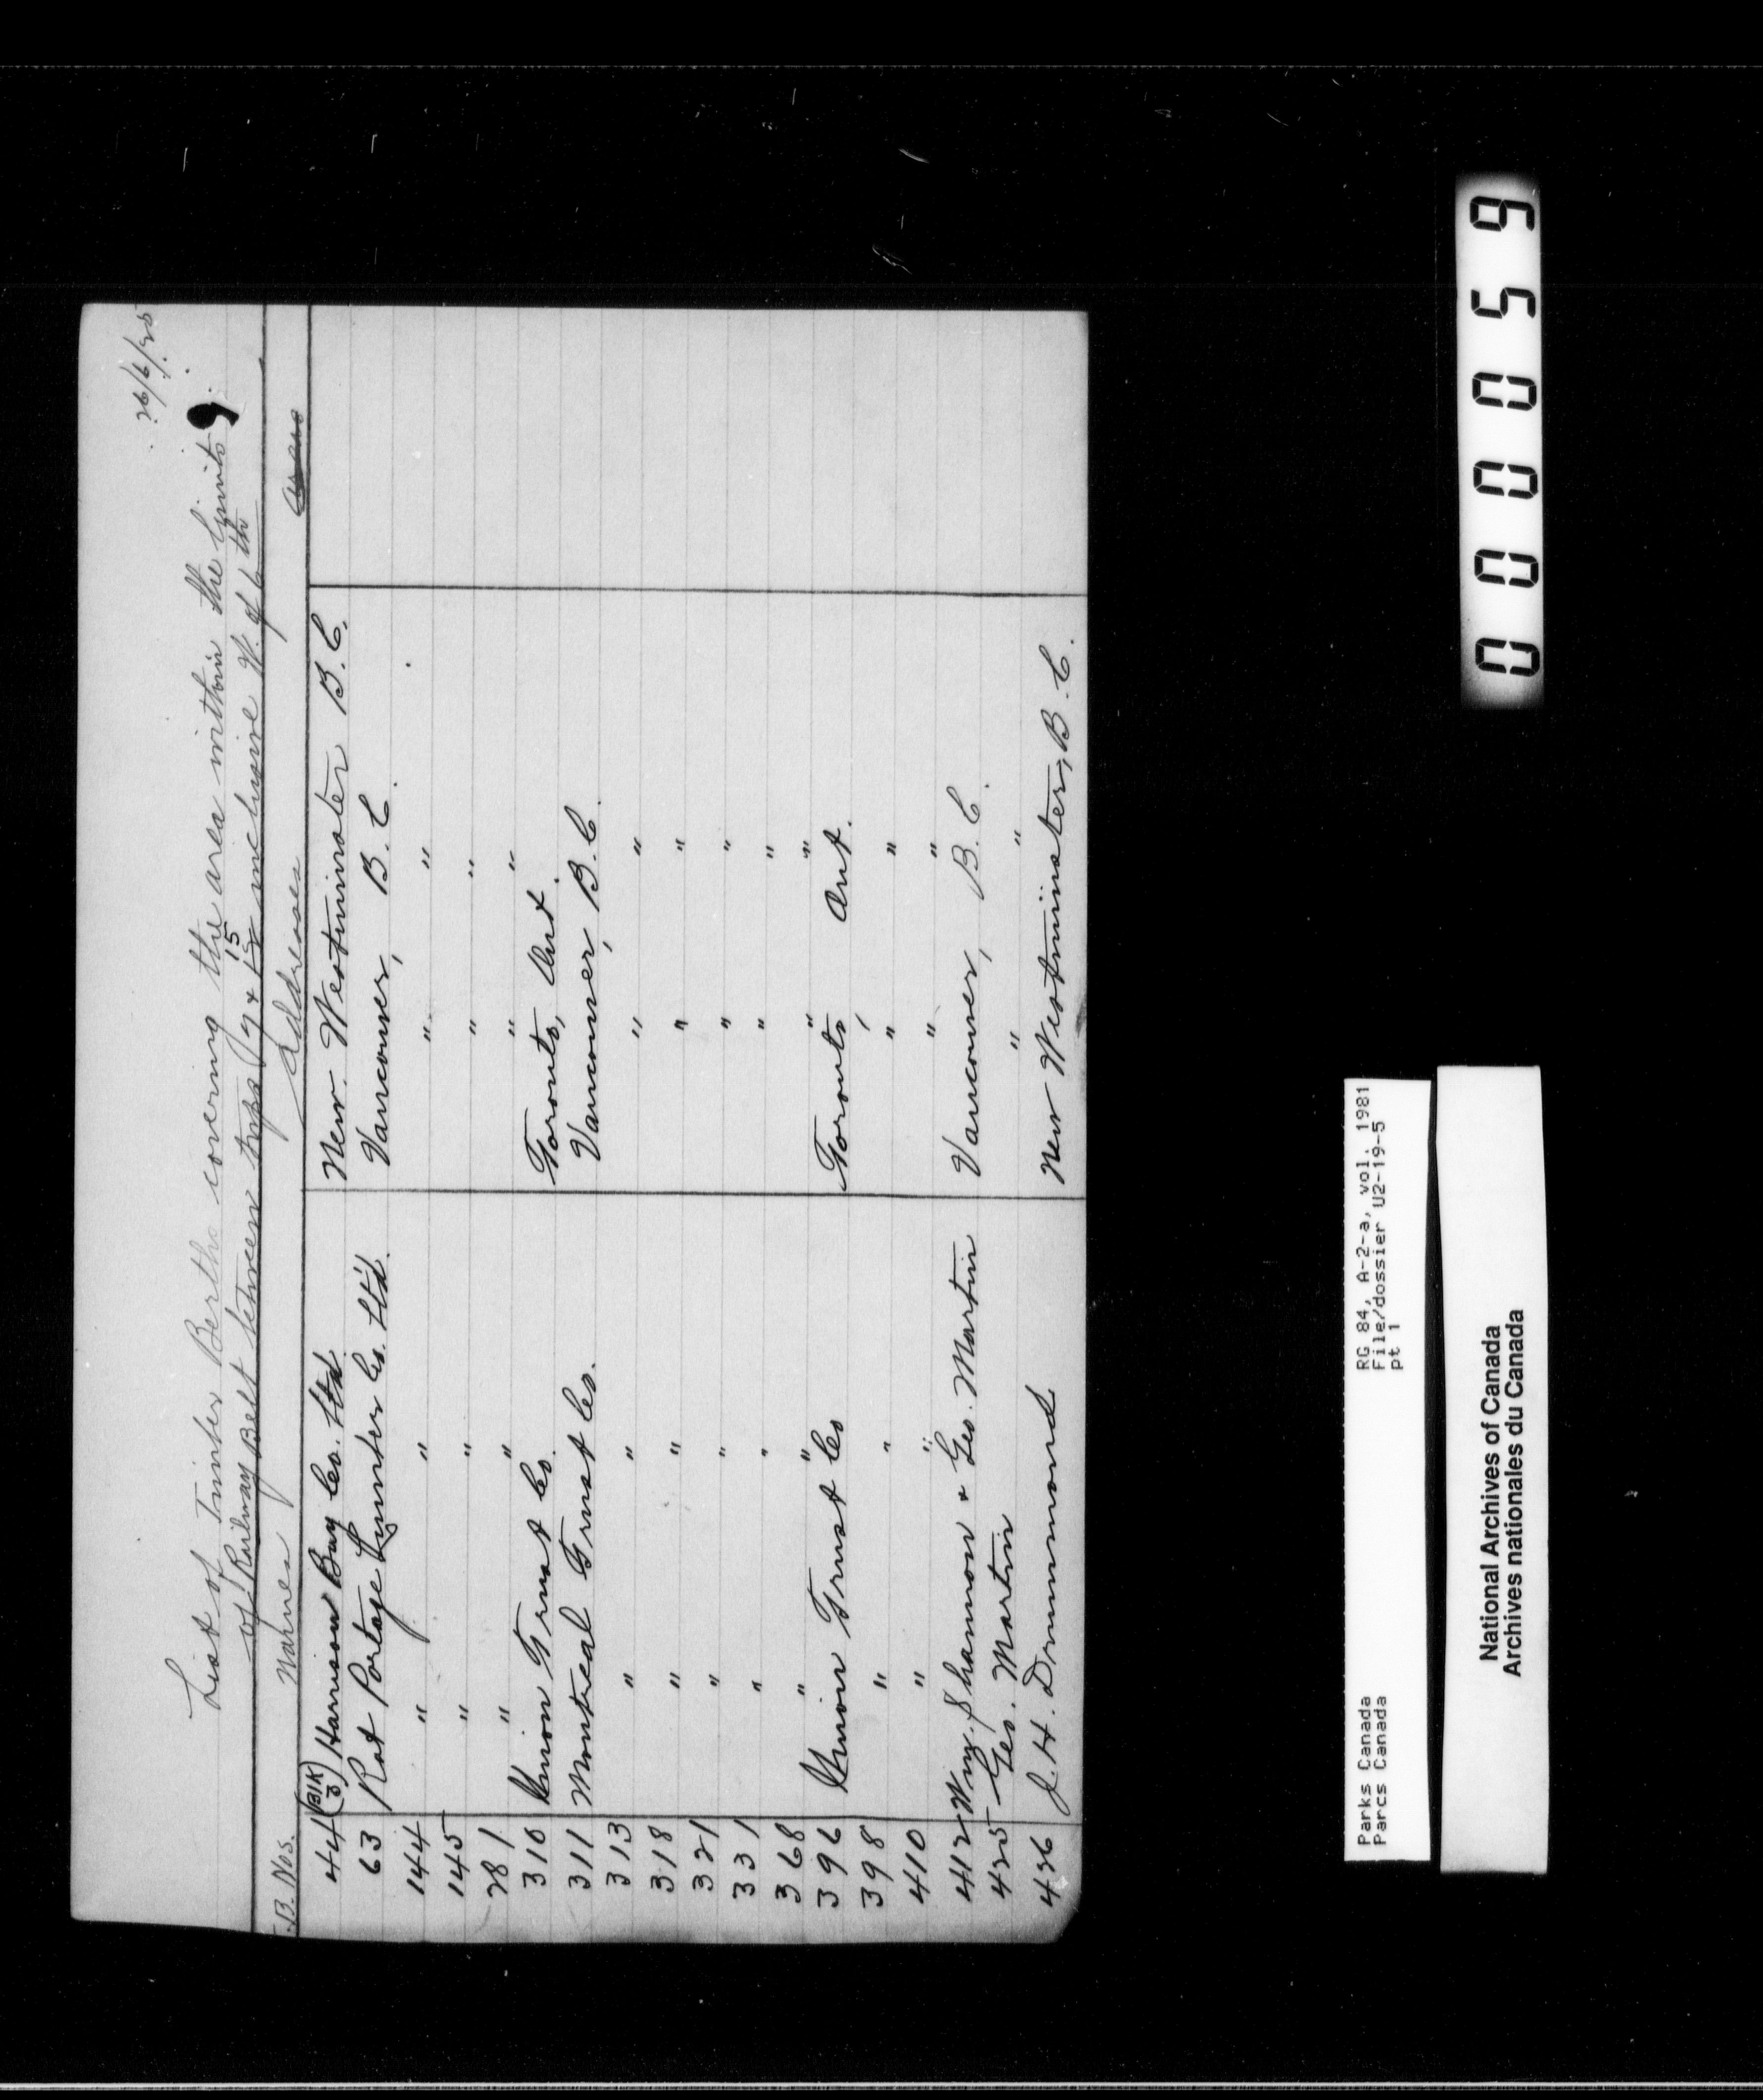 26/6/25
List of Timber Berths covering the area within the Limits
of Railway Belt between tps (7 & 15 inclusive W. of 6th
T.B. Nos. Names Addresses
44 (Blk 3) Harrison Bay Co. Ltd. New Westminster B.C.
63 Rat Portage Lumber Co. Lt'd. Vancouver, B.C.
144 " " " "
145 " " " "
281 " " " "
310 Union Trust Co. Toronto, Ont.
311 Montreal Trust Co. Vancouver, B.C.
313 " " " "
318 " " " "
321 " " " "
331 " " " "
368 " " " "
396 Union Trust Co Toronto, Ont.
398 " " " "
410 " " " "
412 Wm. Shannon & Geo. Martin Vancouver, B.C.
425 Geo. Martin " "
426 J. H. Drummond New Westminster, B.C.
000059
Parks Canada RG 84, A-2-a, vol. 1981
Parcs Canada File/dossier U2-19-5
pt 1
National Archives of Canada
Archives nationales du Canada